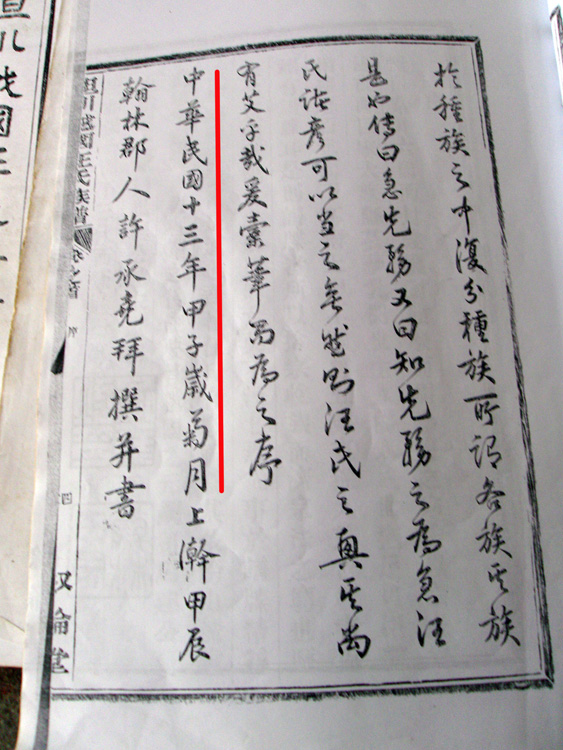 於種族之中復分種族所謂各族其族
是也傳曰急先務又曰知先務之為急汪
氏 彥可以當之無 然則汪氏之興其尚
有艾乎哉爰 筆而為之序
中華民國十三年甲子歲菊月上澣甲辰
翰林郡人許承堯拜撰并書
坦川越國汪氏族譜 卷之首 序 四 叙倫堂